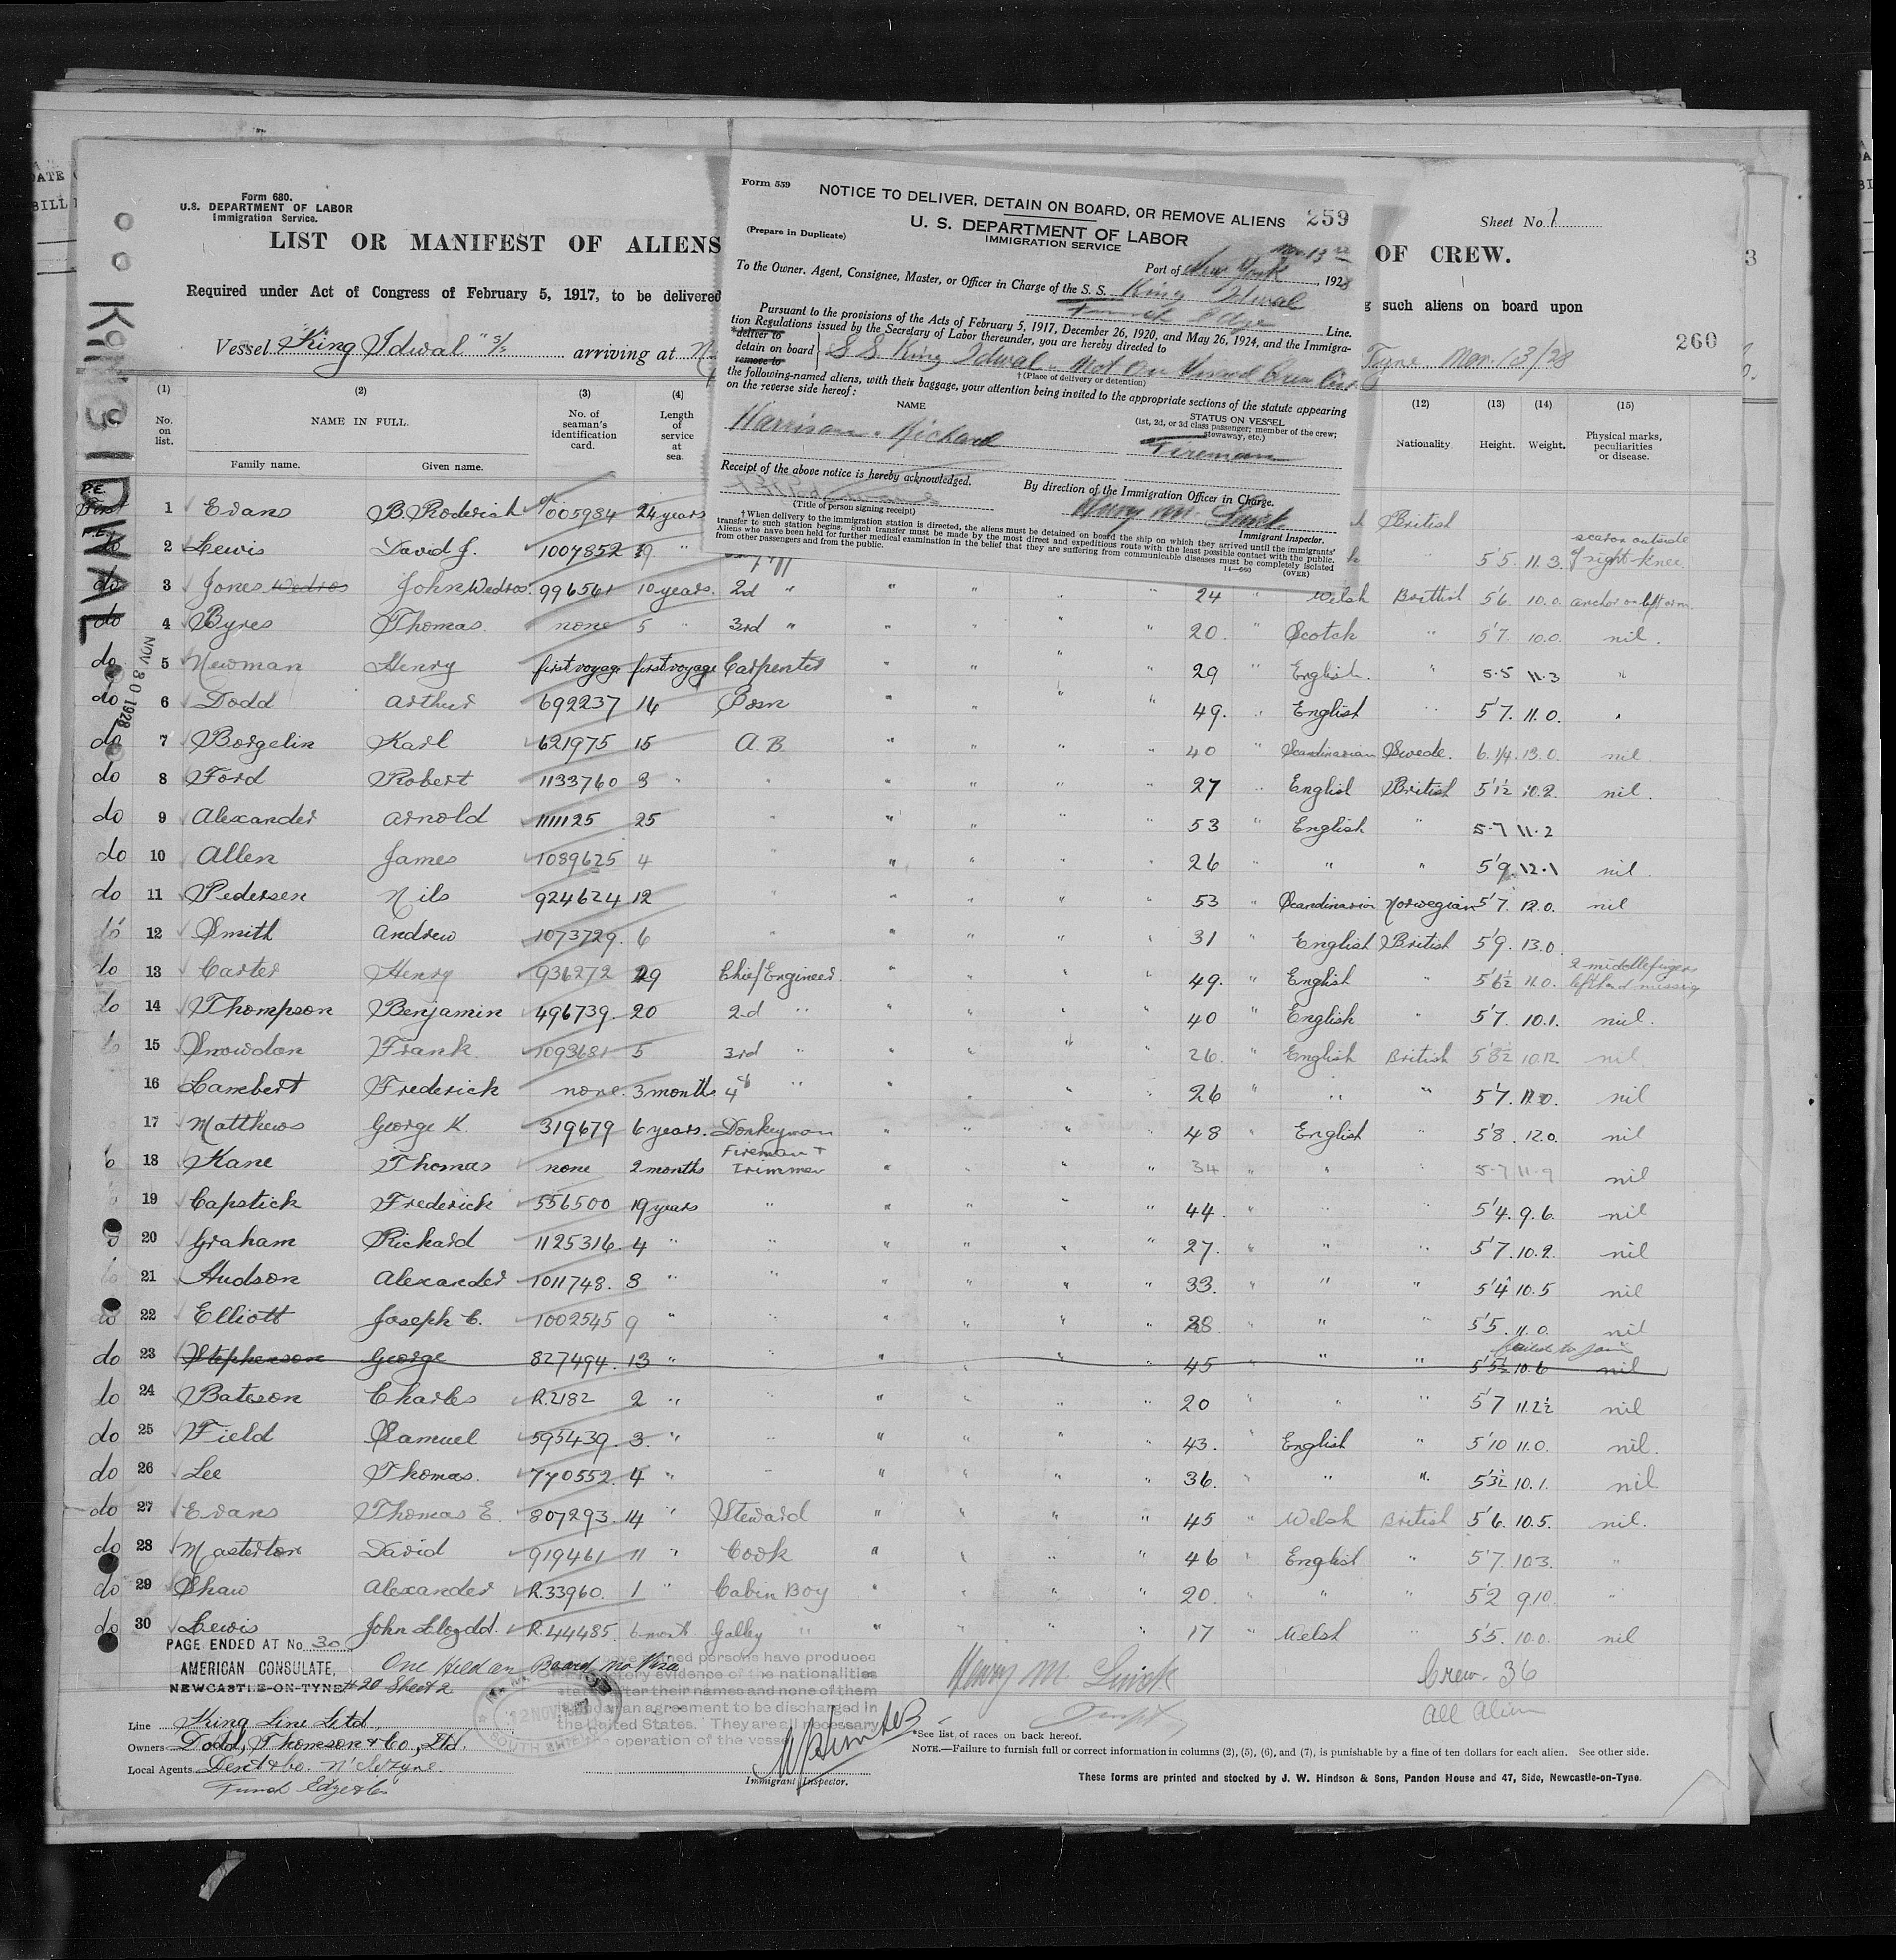 Form 680.
U.S. DEPARTMENT OF LABOR
Immigration Service.
Sheet No. 1
LIST OR MANIFEST OF ALIENS
OF CREW.
Required under Act of Congress of February 5, 1917, to be delivered
g such aliens on board upon
Vessel "King Idwal" arriving at
Tyne Mar. 13/28
260
Form 559
NOTICE TO DELIVER, DETAIN ON BOARD, OR REMOVE ALIENS 259
(Prepare in Duplicate)
U. S. DEPARTMENT OF LABOR
IMMIGRATION SERVICE
Port of New York 1928
To the Owner, Agent, Consignee, Master, or Officer in Charge of the S. S. King Idwal
Funch Edye Line.
Pursuant to the provisions of the Acts of February 5, 1917, December 26, 1920, and May 26, 1924, and the Immigra-
tion Regulations issued by the Secretary of Labor thereunder, you are hereby directed to
*deliver to
detain on board S S King Idwal - Not on Visaed Crew List
remove to
†(Place of delivery or detention)
the following-named aliens, with their baggage, your attention being invited to the appropriate sections of the statute appearing
on the reverse side hereof:
NAME
STATUS ON VESSEL
(1st, 2d, or 3d class passenger; member of the crew;
stowaway, etc.)
Harrison - Richard Fireman
Receipt of the above notice is hereby acknowledged.
By direction of the Immigration Officer in Charge.
(Title of person signing receipt)
Immigrant Inspector.
†When delivery to the immigration station is directed, the aliens must be detained on board the ship on which they arrived until the immigrants'
transfer to such station begins. Such transfer must be made by the most direct and expeditious route with the least possible contact with the public.
Aliens who have been held for further medical examination in the belief that they are suffering from communicable diseases must be completely isolated
from other passengers and from the public.
14—660 (OVER)
(1) (2) (3) (4) (12) (13) (14) (15)
No. on list. NAME IN FULL. No. of seaman's identification card. Length of service at sea. Nationality. Height. Weight. Physical marks, peculiarities or disease.
Family name. Given name.
KING IDWAL
NOV 30 1928
P.E. First 1 Evans B. Roderick 1005984 24 years British
P.E. do 2 Lewis David J. 1007852 19 " " 5'5 11.3 scar on outside of right knee
do 3 Jones Wedros John Wedros. 996561 10 years. 2nd " " " " " 24 " Welsh Brittish 5'6. 10.0. anchor on left arm.
do 4 Byres Thomas. none 5 " 3rd " " " " " 20. " Scotch " 5'7. 10.0. nil.
do 5 Newman Henry first voyage first voyage Carpenter " " " " 29 " English. " 5.5 11.3 "
do 6 Dodd Arthur 692237 14 Bosn " " " " 49. " English " 5'7. 11.0. "
do 7 Borgelin Karl 621975 15 A.B. " " " " 40 " Scandinavian Swede. 6.1/4. 13.0. nil.
do 8 Ford Robert 1133760 3 " " " " " " 27 " English British 5'1½ 10.2. nil.
do 9 Alexander Arnold 1111125 25 " " " " " 53 " English " 5.7 11.2
do 10 Allen James 1089625 4 " " " " " 26 " " " 5'9. 12.1 nil.
do 11 Pedersen Nils 924624 12 " " " " " 53 " Scandinavian Norwegian 5'7. 12.0. nil
do 12 Smith Andrew 1073729. 6 " " " " " 31 " English British 5'9. 13.0
do 13 Carter Henry 936272 29 Chief Engineer. " " " " 49. " English " 5'6½ 11.0. 2 middle fingers left hand missing
do 14 Thompson Benjamin 496739. 20 2nd " " " " " 40 " English " 5'7. 10.1. nil.
15 Snowdon Frank. 1093681 5 3rd " " " " " 26. " English British 5'8½ 10.12 nil
16 Lambert Frederick none. 3 months 4th " " " " " 26 " " " 5'7. 11.0. nil
17 Matthews George K. 319679 6 years. Donkeyman " " " " 48 " English " 5'8. 12.0. nil
18 Kane Thomas none 2 months Fireman + Trimmer " " " " 34 " " " 5.7 11.9 nil
19 Capstick Frederick 556500 19 years " " " " " 44. " " " 5'4. 9.6. nil
20 Graham Richard 1125316. 4 " " " " " " 27. " " " 5'7. 10.2. nil
21 Hudson Alexander 1011748. 8 " " " " " " 33. " " " 5'4 10.5 nil
22 Elliott Joseph C. 1002545 9 " " " " " " 28 " " " 5'5. 11.0. nil
failed to join
do 23 Stephenson George 827494. 13 " " " " " " 45 " " " 5'5½ 10.6 nil
do 24 Bateson Charles R.2182 2 " " " " " " 20 " " " 5'7 11.2½ nil
do 25 Field Samuel 595439. 3. " " " " " " 43. " English " 5'10 11.0. nil.
do 26 Lee Thomas. 770552. 4 " " " " " " 36. " " " 5'3½ 10.1. nil.
do 27 Evans Thomas E. 807293. 14 " Steward " " " " 45 " Welsh British 5'6. 10.5. nil.
do 28 Masterton David 919461 11 " Cook " " " " 46 " English " 5'7. 10.3. "
do 29 Shaw Alexander R.33960. 1 " Cabin Boy " " " " 20. " " " 5'2 9.10. "
do 30 Lewis John Lloydd. R.44485. 6 month Galley " " " " " 17 " Welsh " 5'5. 10.0. nil
PAGE ENDED AT No. 30
AMERICAN CONSULATE,
NEWCASTLE-ON-TYNE
One Held on Board No Visa
#20 Sheet 2
named persons have produced
evidence of the nationalities
after their names and none of them
an agreement to be discharged in
the United States. They are all necessary
operation of the vessel
Henry M.
Crew. 36
All Alien
Line King Line Ltd.,
Owners Dodd, Thomson & Co., Ltd.
Local Agents
Funch Edye & Co
Immigrant Inspector.
*See list of races on back hereof.
NOTE.—Failure to furnish full or correct information in columns (2), (5), (6), and (7), is punishable by a fine of ten dollars for each alien. See other side.
These forms are printed and stocked by J. W. Hindson & Sons, Pandon House and 47, Side, Newcastle-on-Tyne.